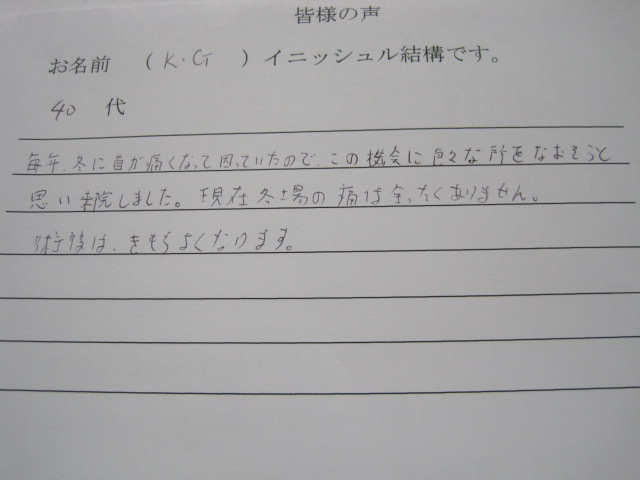 皆様の声
お名前 （ K・G ）イニッシュル結構です。
40 代
毎年、冬に首が痛くなって困っていたので、この機会に色々な所をなおそうと
思い来院しました。現在冬場の痛は全ったくありません。
術後は、きもちよくなります。